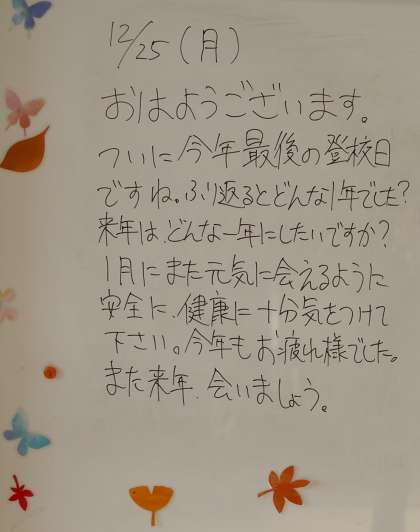 12/25(月)
おはようございます。
ついに今年最後の登校日
ですね。ふり返るとどんな1年でした?
来年は、どんな一年にしたいですか?
1月にまた元気に会えるように
安全に、健康に十分気をつけて
下さい。今年もお疲れ様でした。
また来年、会いましょう。